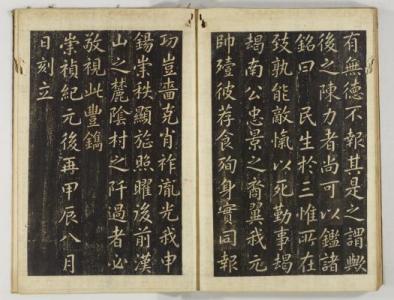 有無德不報其是之謂歟
後之陳力者尚可以鑑諸
銘曰 民生於三惟所在
致孰能敵愾以死勤事
南公忠景之裔翼我元
帥殪彼荐食殉身實同報
功豈嗇克肖祚胤光我申
錫崇秩顯旌照曜後前漢
山之麓陰村之阡過者必
敬視此豐鐫
崇禎紀元後再甲辰八月
日刻立